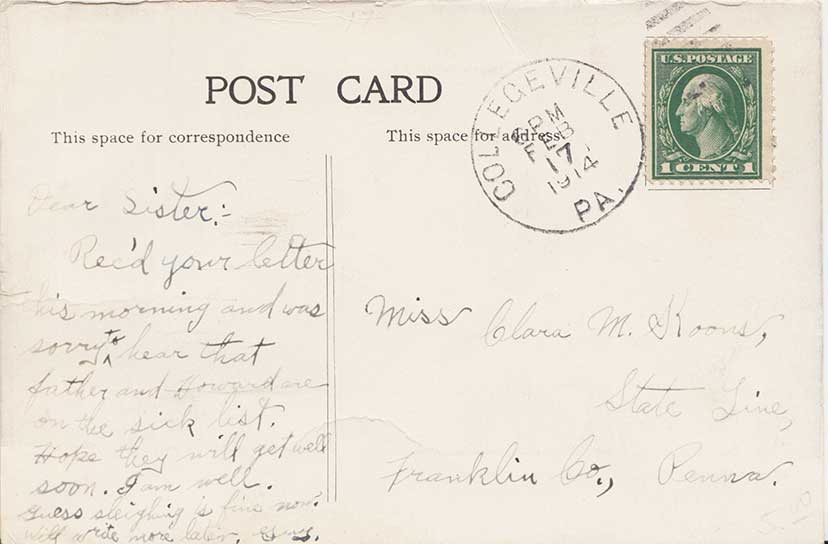 POST CARD
This space for correspondence
This space for address.
COLLEGEVILLE
PM
FEB
17
1914
PA.
U.S. POSTAGE
1 CENT 1
Dear Sister:-
Rec'd your letter
this morning and was
sorry to hear that
father and Howard are
on the sick list.
Hope they will get well
soon. I am well.
Guess sleighing is fine now.
Will write more later,
Miss Clara M. Koons,
State Line,
Franklin Co., Penna.
5.00